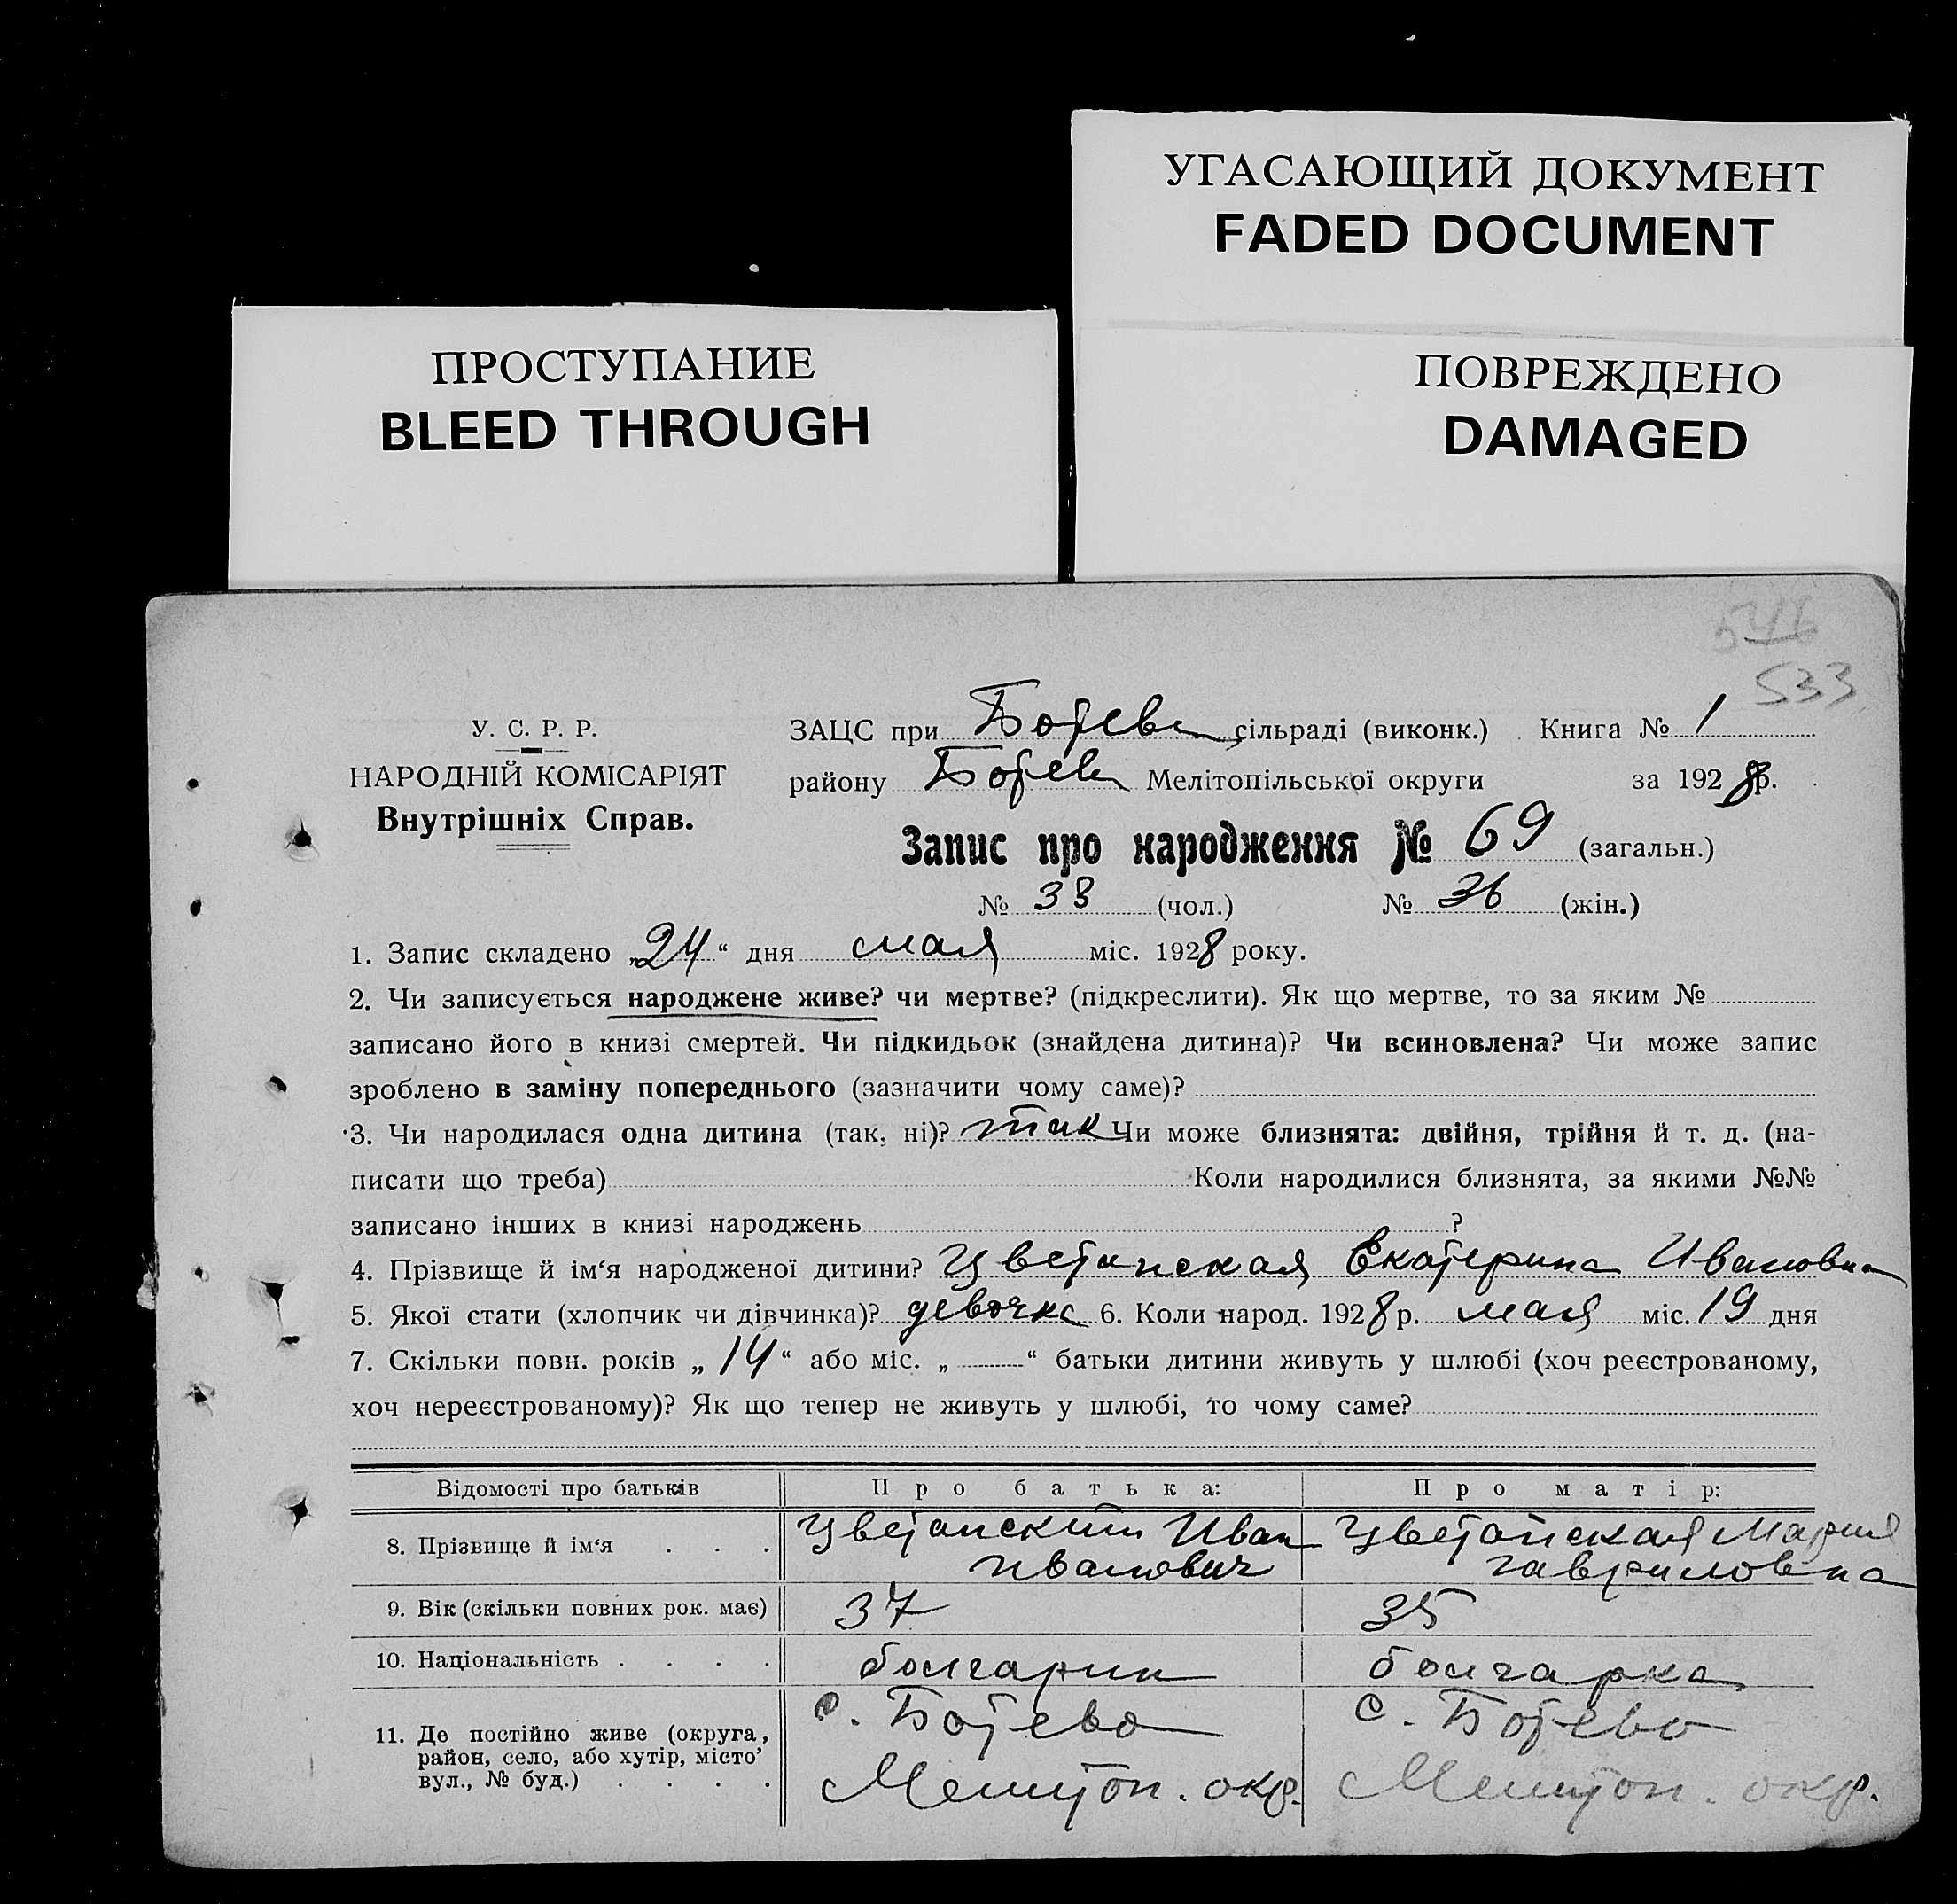 УГАСАЮЩИЙ ДОКУМЕНТ
FADED DOCUMENT
ПРОСТУПАНИЕ
BLEED THROUGH
ПОВРЕЖДЕНО
DAMAGED
546
533
У. С. Р. Р.
НАРОДНІЙ КОМІСАРІЯТ
Внутрішніх Справ.
ЗАЦС при Ботєвс сільраді (виконк.) Книга № 1
району Ботев Мелітопільської округи за 1928 р.
Запис про народження № 69 (загальн.)
№ 33 (чол.) № 36 (жін.)
1. Запис складено „24“ дня мая міс. 1928 року.
2. Чи записується народжене живе? чи мертве? (підкреслити). Як що мертве, то за яким №
записано його в книзі смертей. Чи підкидьок (знайдена дитина)? Чи всиновлена? Чи може запис
зроблено в заміну попереднього (зазначити чому саме)?
3. Чи народилася одна дитина (так, ні)? так Чи може близнята: двійня, трійня й т. д. (на-
писати що треба) Коли народилися близнята, за якими №№
записано інших в книзі народжень ?
4. Прізвище й ім‘я народженої дитини? Цветанская Екатерина Ивановна
5. Якої стати (хлопчик чи дівчинка)? девочка 6. Коли народ. 1928 р. мая міс. 19 дня
7. Скільки повн. років „14“ або міс. „ “ батьки дитини живуть у шлюбі (хоч реєстрованому,
хоч нереєстрованому)? Як що тепер не живуть у шлюбі, то чому саме?
Відомості про батьків Про батька: Про матір:
8. Прізвище й ім‘я . . . Цветанский Иван Иванович Цветанская Мария гавриловна
9. Вік (скільки повних рок. має) 37 35
10. Національність . . . . болгарин болгарка
11. Де постійно живе (округа, район, село, або хутір, місто, вул., № буд.) . . . . с. Ботево Мелитоп. окр. с. Ботево Мелитоп. окр.